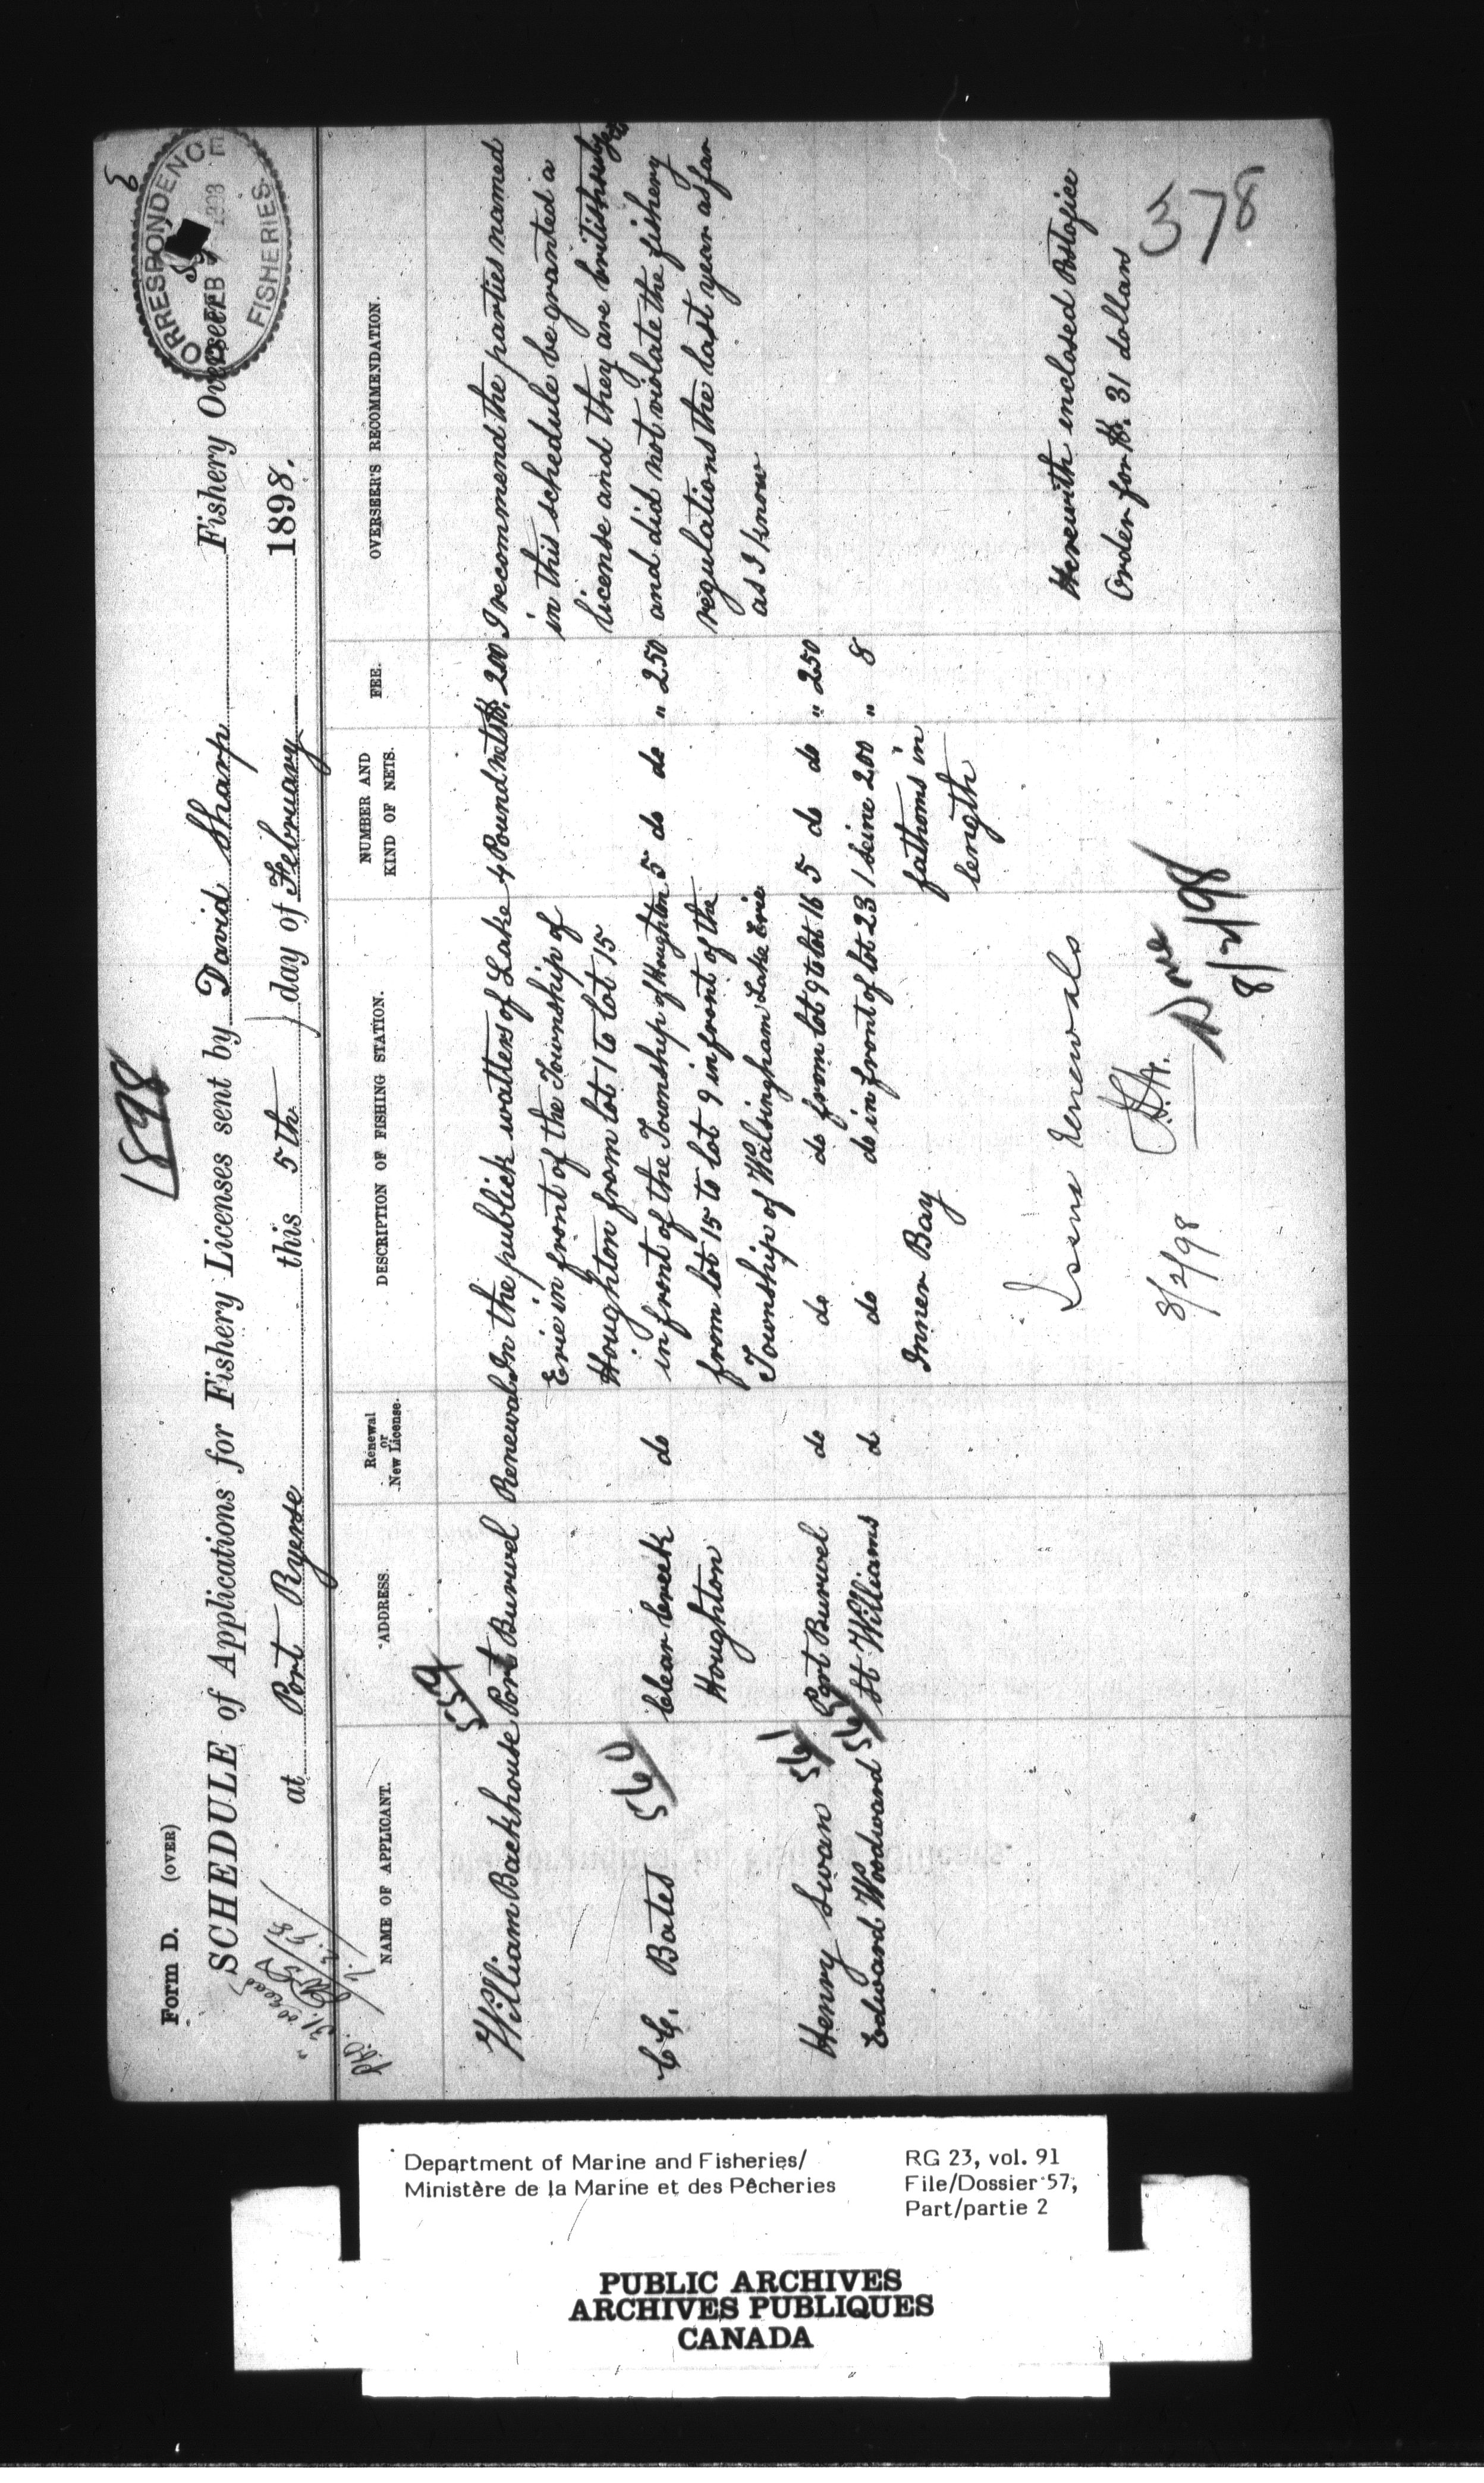 Form D. (OVER)
1898
SCHEDULE of Applications for Fishery Licenses sent by David Sharp Fishery Overseer
at Port Ryerse this 5th day of February 1898.
CORRESPONDENCE
FEB 7 1898
FISHERIES
NAME OF APPLICANT. ADDRESS. Renewal or New License. DESCRIPTION OF FISHING STATION. NUMBER AND KIND OF NETS. FEE. OVERSEER'S RECOMMENDATION.
559
William Backhouse Port Burwel Renewal In the publick watters of Lake 4 Pound nets $. 200 I recommend the parties named
Erie in front of the Township of in this schedule be granted a
Houghton from lot 1 to lot 15 license and they are british
C.C. Bates 560 Clear Creek do in front of the Township of Houghton 5 do do " 250 and did not violate the fishery
Houghton from lot 15 to lot 9 in front of the regulations the last year as far
Township of Walsingham Lake Erie as I know
Henry Swan 561 Port Burwel do do do from lot 9 to lot 16 5 do do " 250
Edward Woodward 562 St Williams d do do in front of lot 23 1 seine 200 " 8
Inner Bay fathoms in
length
Herewith inclosed Postofice
Order for $. 31 dollars
378
Issue renewals
8/2/98
Done
8/2/98
Department of Marine and Fisheries/
Ministère de la Marine et des Pêcheries
RG 23, vol. 91
File/Dossier 57,
Part/partie 2
PUBLIC ARCHIVES
ARCHIVES PUBLIQUES
CANADA